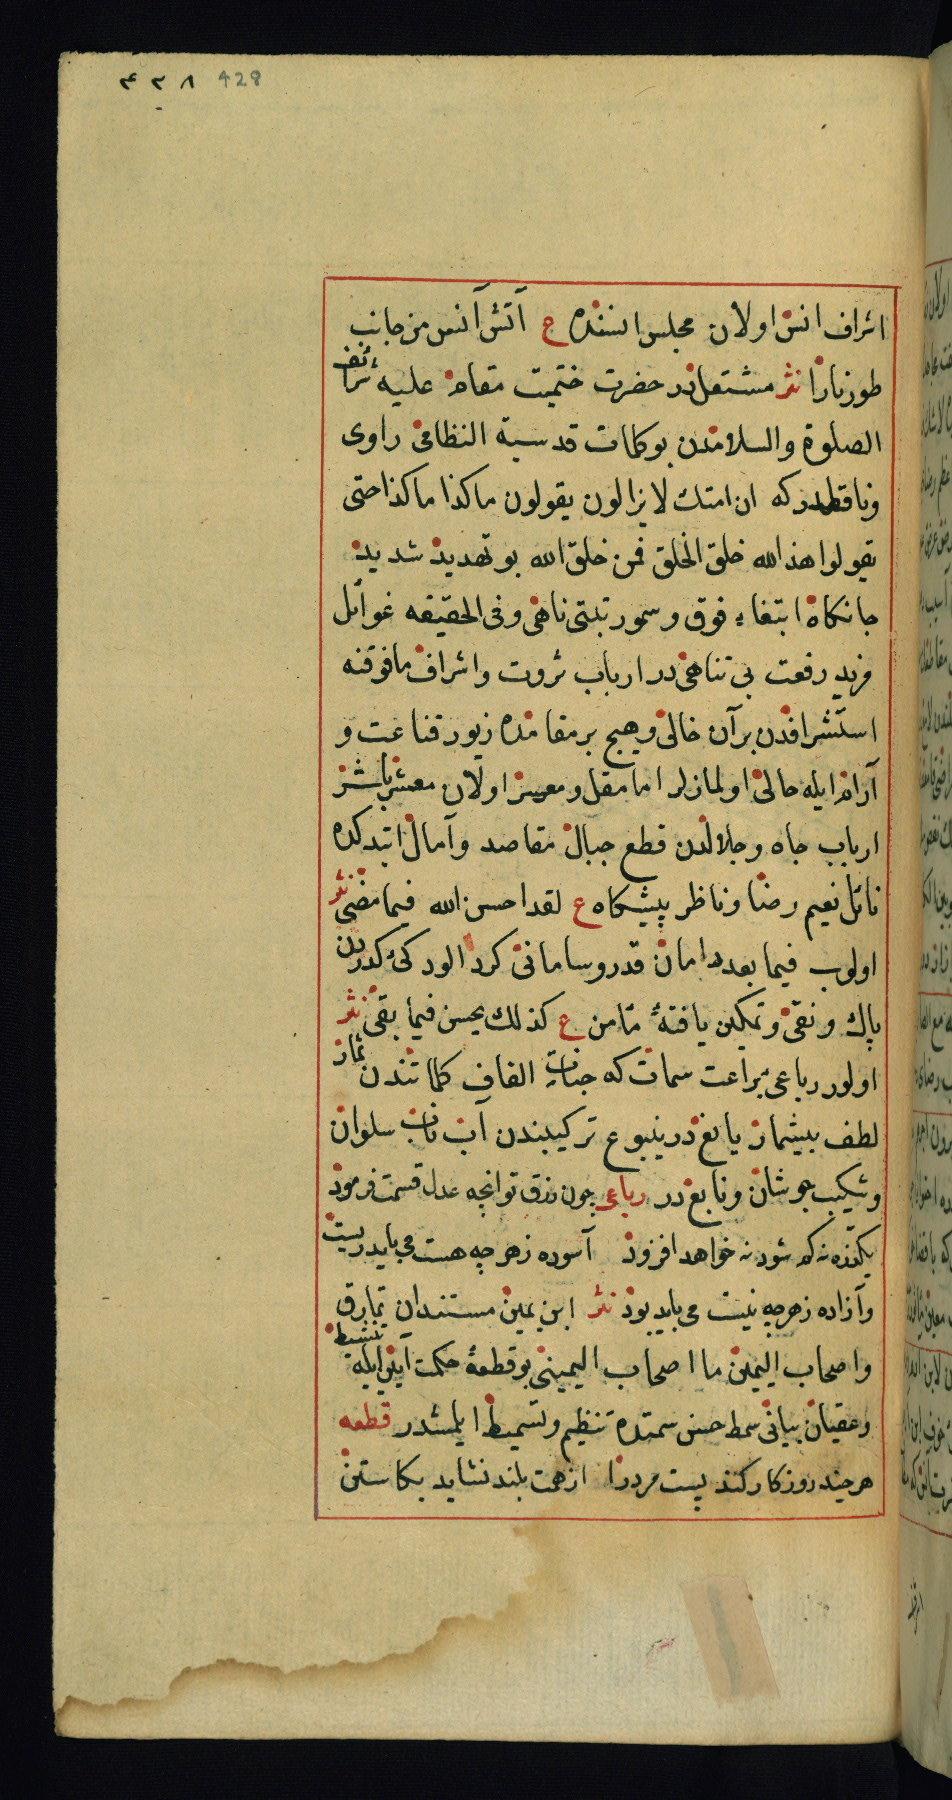 ۴۲۸ 428
اشراف انس اولان مجلس انسنده ع آتش آنس من جانب
طور نارا نثر مشتعلدر حضرت ختمیت مقام علیه شرائف
الصلوة والسلامدن بو کلمات قدسیة النظامی راوی
وناقلدر که ان امتك لا یزالون یقولون ما کذا ما کذا حتی
یقولوا هذا الله خلق الخلق فمن خلق الله بو تهدید شدید
جانکاه ابتغاء فوق وسمو رتبتی ناهی وفی الحقیقه غوائل
مزید رفعت بی تناهی در ارباب ثروت واشراف مافوقنه
استشرافدن برآن خالی وهیچ بر مقامده زیور قناعت و
آرام ایله حالی اولمازلر اما مقل ومعسر اولان معشر باشر
ارباب جاه وجلالدن قطع حبال مقاصد وآمال اتیدکده
نائل نعیم رضا وناظر پیشکاه ع لقد احسن الله فیما مضی نثر
اولوب فیما بعد دامان قدر وسامانی کرد الودکئ کدردن
پاك ونقی وتمکین یافتهٔ مأمن ع کذلك یحسن فیما بقی نثر
اولور رباعی براعت سمات که جنات الفاف کلماتندن ثمار
لطف بیشمار یانع در ینبوع ترکیبندن آب ناب سلوان
وشکیب جوشان ونابع در رباعی چون رزق تو انچه عدل قسمت فرمود
یکذره نه کم شود نه خواهد افزود آسوده زهر چه هست می باید زیست
وآزاده زهرچه نیست می باید بود نثر ابن یمین مستندان نمارق
واصحاب الیمین ما اصحاب الیمینی بو قطعهٔ حکمت آیین ایله تنشیط
وعقیان بیانی سمط حسن سمتده تنظیم وتسمیط ایلمشدر قطعه
هرچند روزکار کند پست مرد را از همت بلند نشاید بکاستن